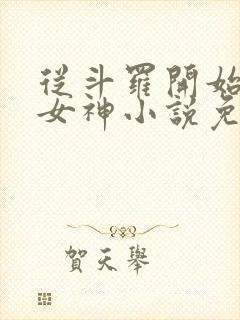 從斗羅開始
女神小說免
賀天舉